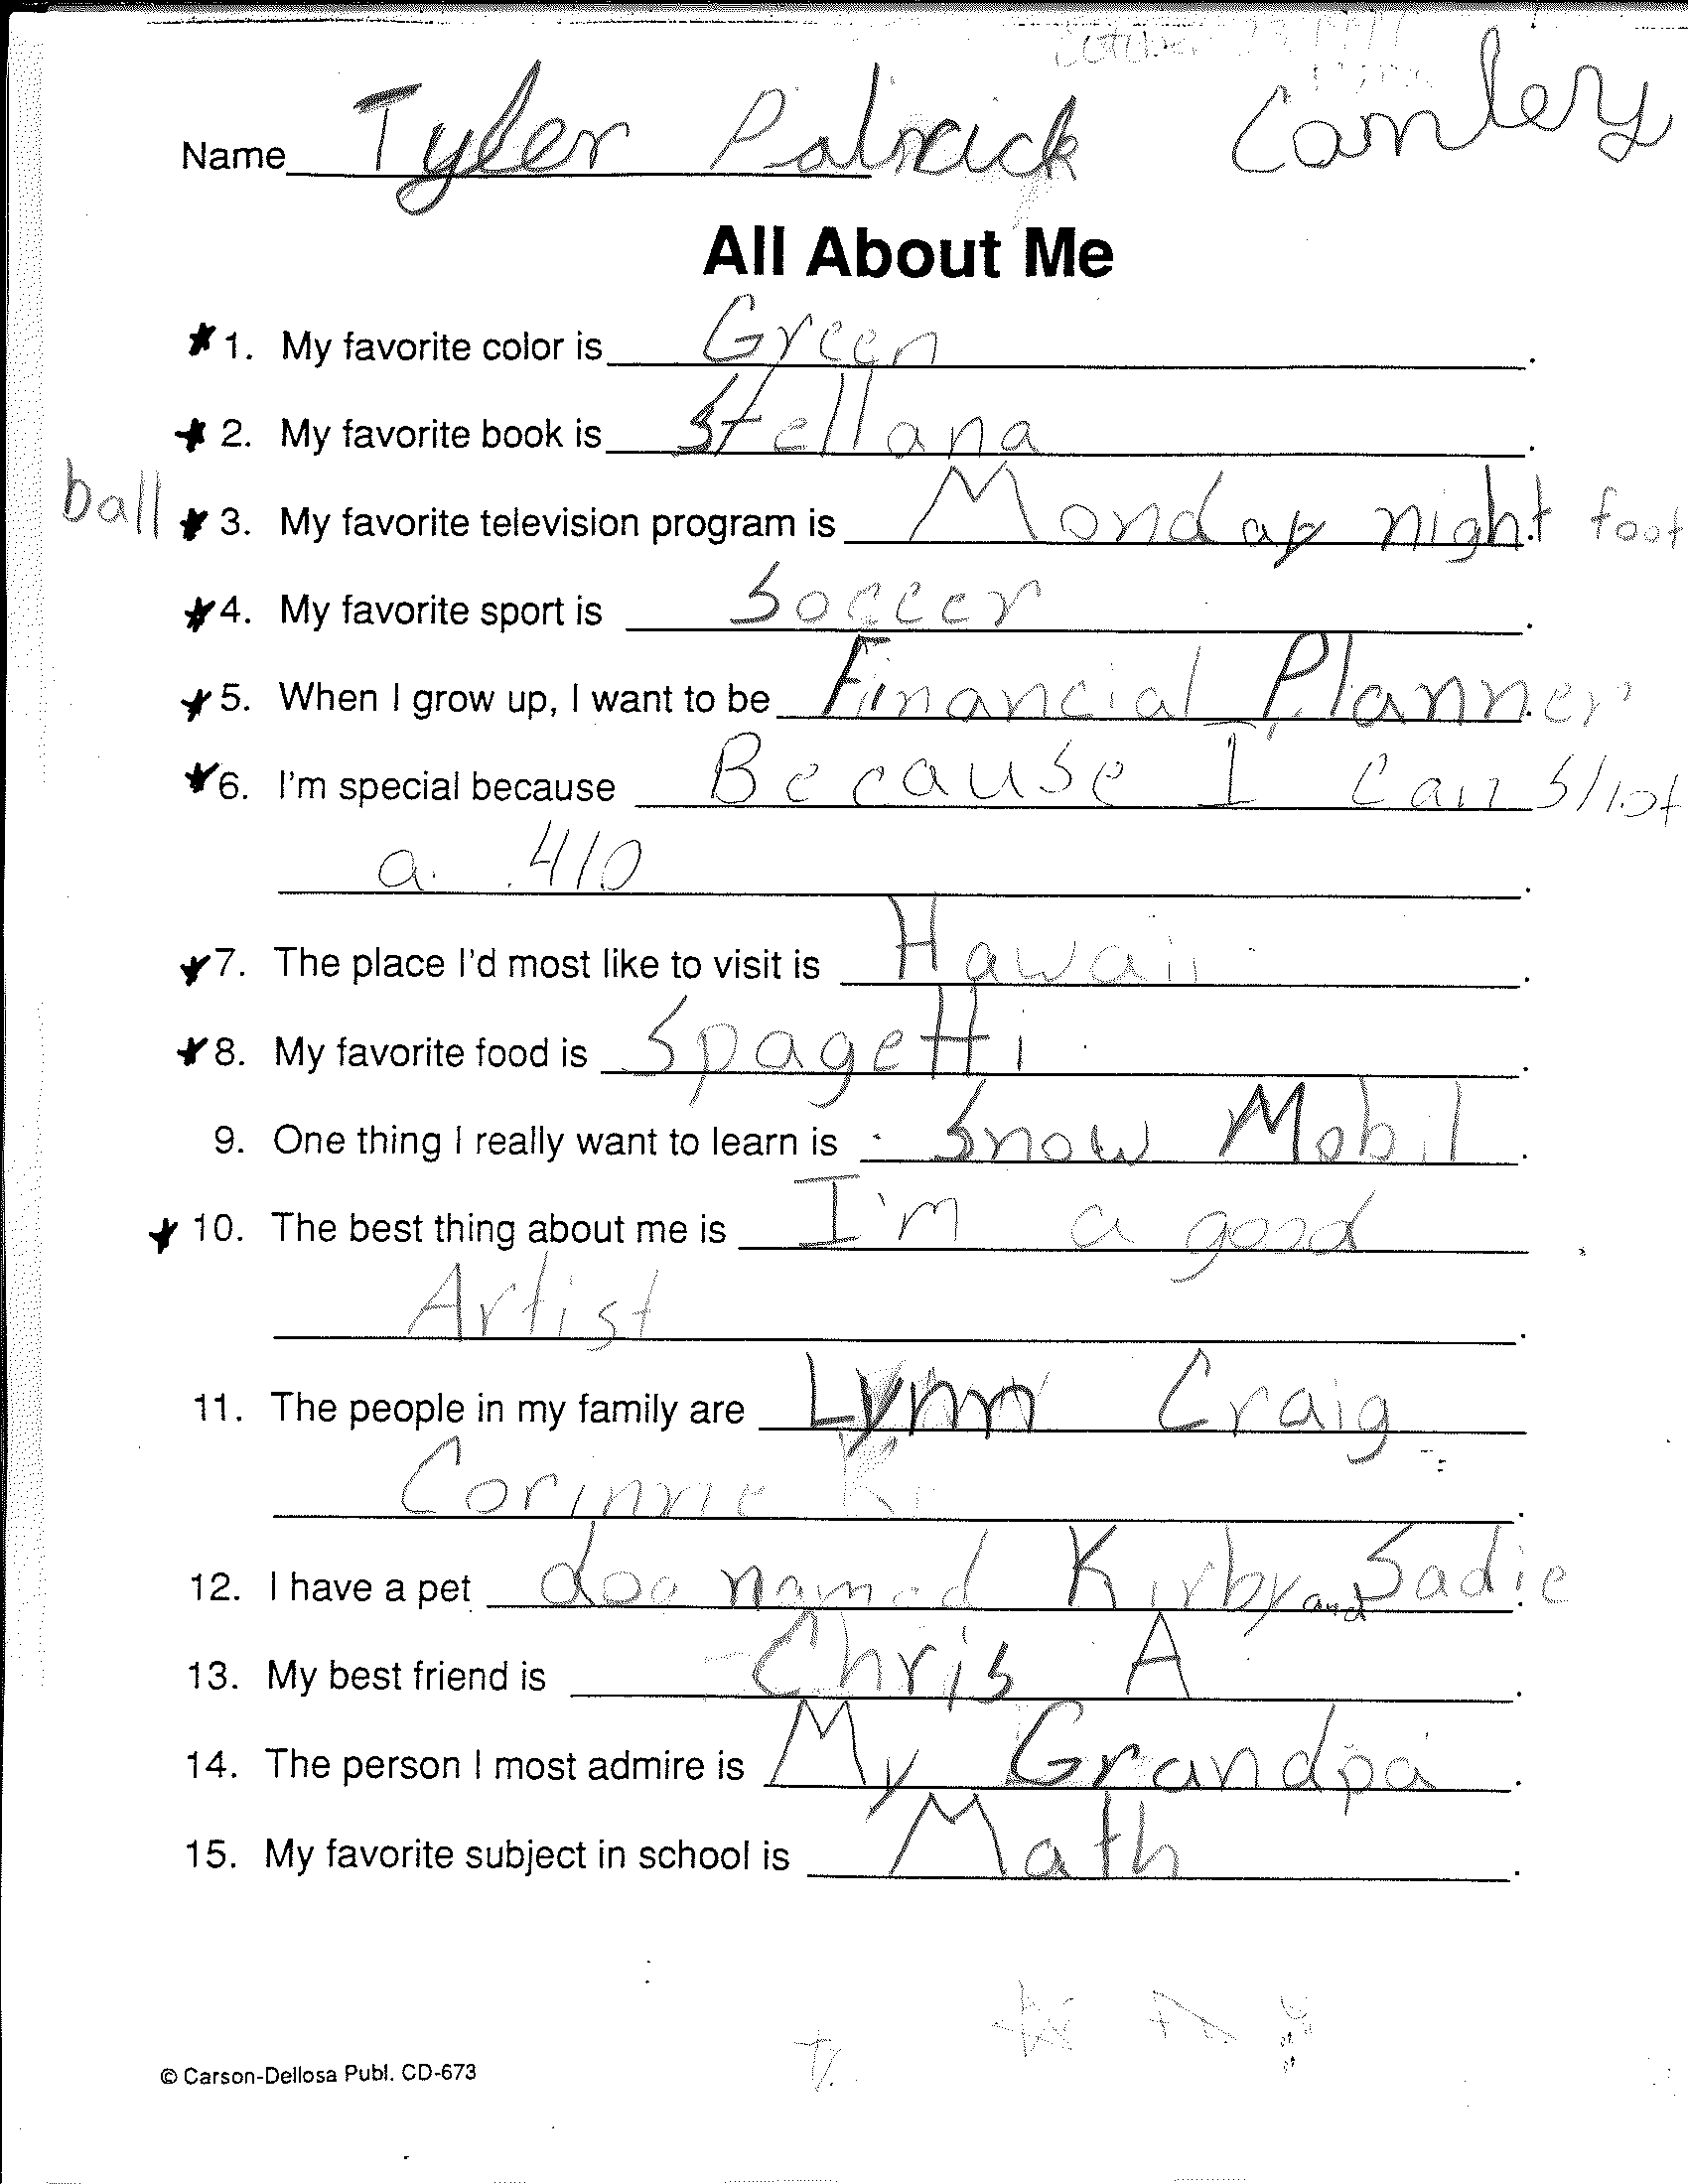 October 23 1997
Name Tyler Patrick Conley
All About Me
* 1. My favorite color is Green.
* 2. My favorite book is Stellana.
* 3. My favorite television program is Monday night foot
ball
* 4. My favorite sport is Soccer.
* 5. When I grow up, I want to be Financial Planner.
* 6. I'm special because Because I can Shot
a .410.
* 7. The place I'd most like to visit is Hawaii.
* 8. My favorite food is Spagetti.
9. One thing I really want to learn is Snow Mobil.
* 10. The best thing about me is I'm a good
Artist.
11. The people in my family are Lynn Craig
Corinne Ki.
12. I have a pet dog named Kirby and Sadie.
13. My best friend is Chris A.
14. The person I most admire is My Grandpa.
15. My favorite subject in school is Math.
© Carson-Dellosa Publ. CD-673